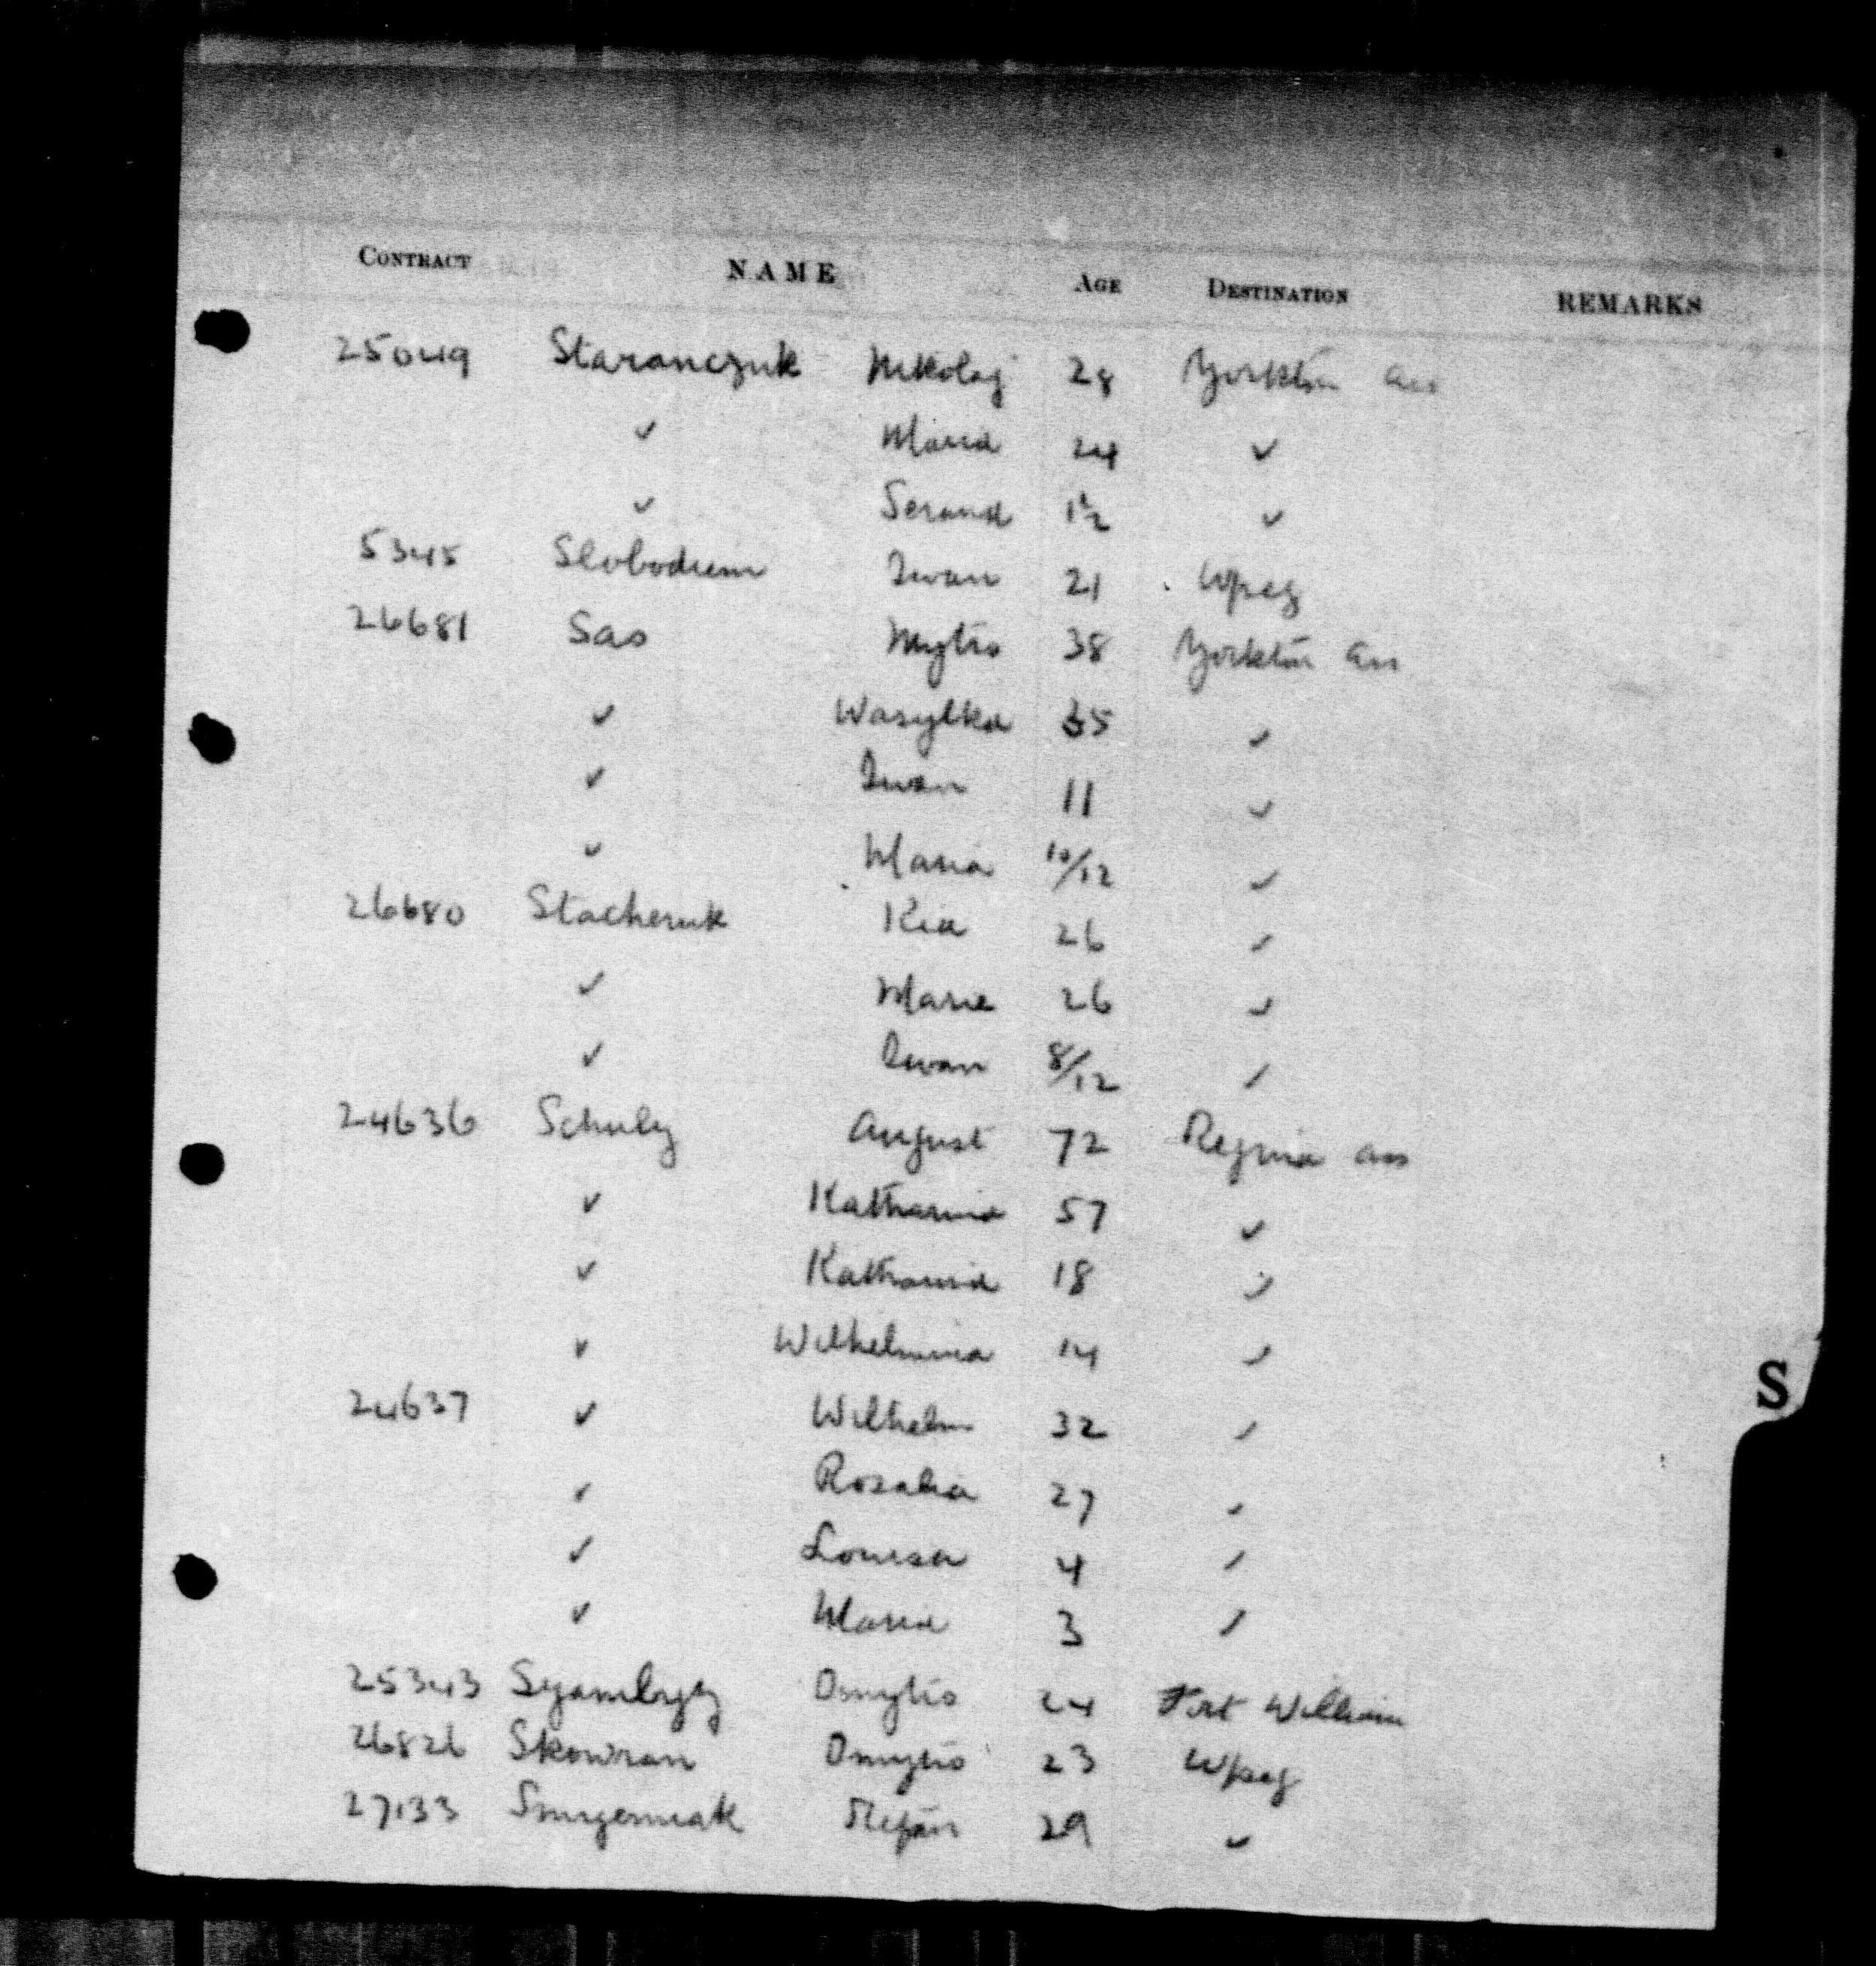 CONTRACT NAME AGE DESTINATION REMARKS
25049 Staranczuk Mikolaj 28 Yorkton Ass
✓ Maria 24 ✓
✓ 1½ ✓
5345 Iwan 21 Wpeg
26681 Sas Mytro 38 Yorkton Ass
✓ Wasylka 35 ✓
✓ Iwan 11 ✓
✓ Maria 10/12 ✓
26680 Stacheruk Kia 26 ✓
✓ Marie 26 ✓
✓ Iwan 8/12 ✓
24636 Schulz August 72 Regina Ass
✓ Katharina 57 ✓
✓ Katharina 18 ✓
✓ Wilhelmina 14 ✓
S
24637 ✓ Wilhelm 32 ✓
✓ Rozalia 27 ✓
✓ Louisa 4 ✓
✓ Maria 3 ✓
25343 Dmytro 24 Fort William
26826 Skowran Dmytro 23 Wpeg
27133 Stefan 29 ✓